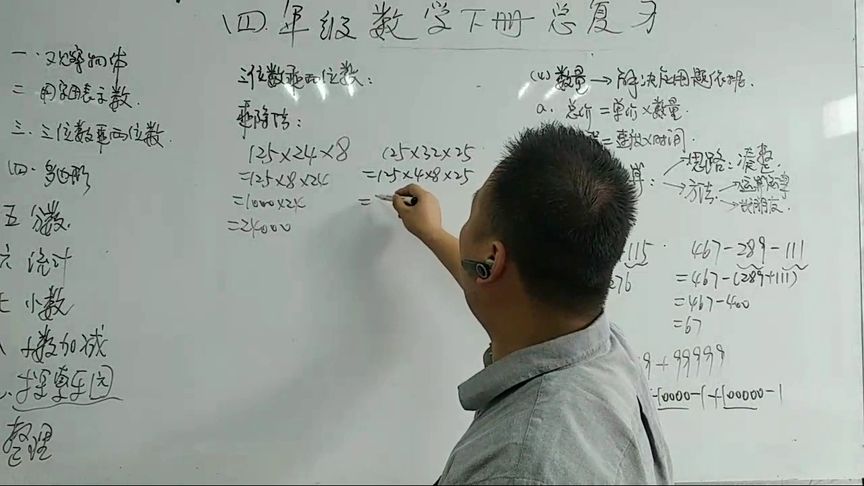 四年级数学下册总复习
一.观察物体
二.用字母表示数.
三.三位数乘两位数.
四.多边形
五 分数.
六 统计
七 小数
小数加减
探索乐园
整理
三位数乘两位数:
乘除法:
125×24×8
=125×8×24
=1000×24
=24000
125×32×25
=125×4×8×25
=
(4)数量→解决应用题依据.
a.总价=单价×数量.
=速度×时间
算:
思路:凑整
方法:
→找朋友.
-115
276
467-289-111
=467-(289+111)
=467-400
=67
9+99999
10000-1+100000-1